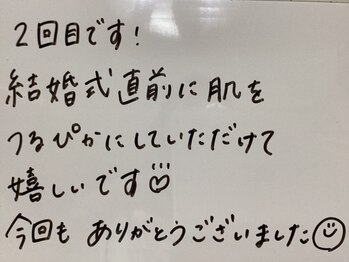 2回目です!
結婚式直前に肌を
つるぴかにしていただけて
嬉しいです♡
今回も ありがとうございました☺